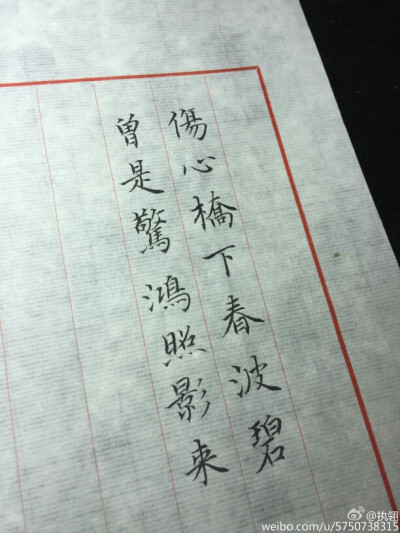 傷心橋下春波碧
曾是驚鴻照影来
@执翎
weibo.com/u/5750738315